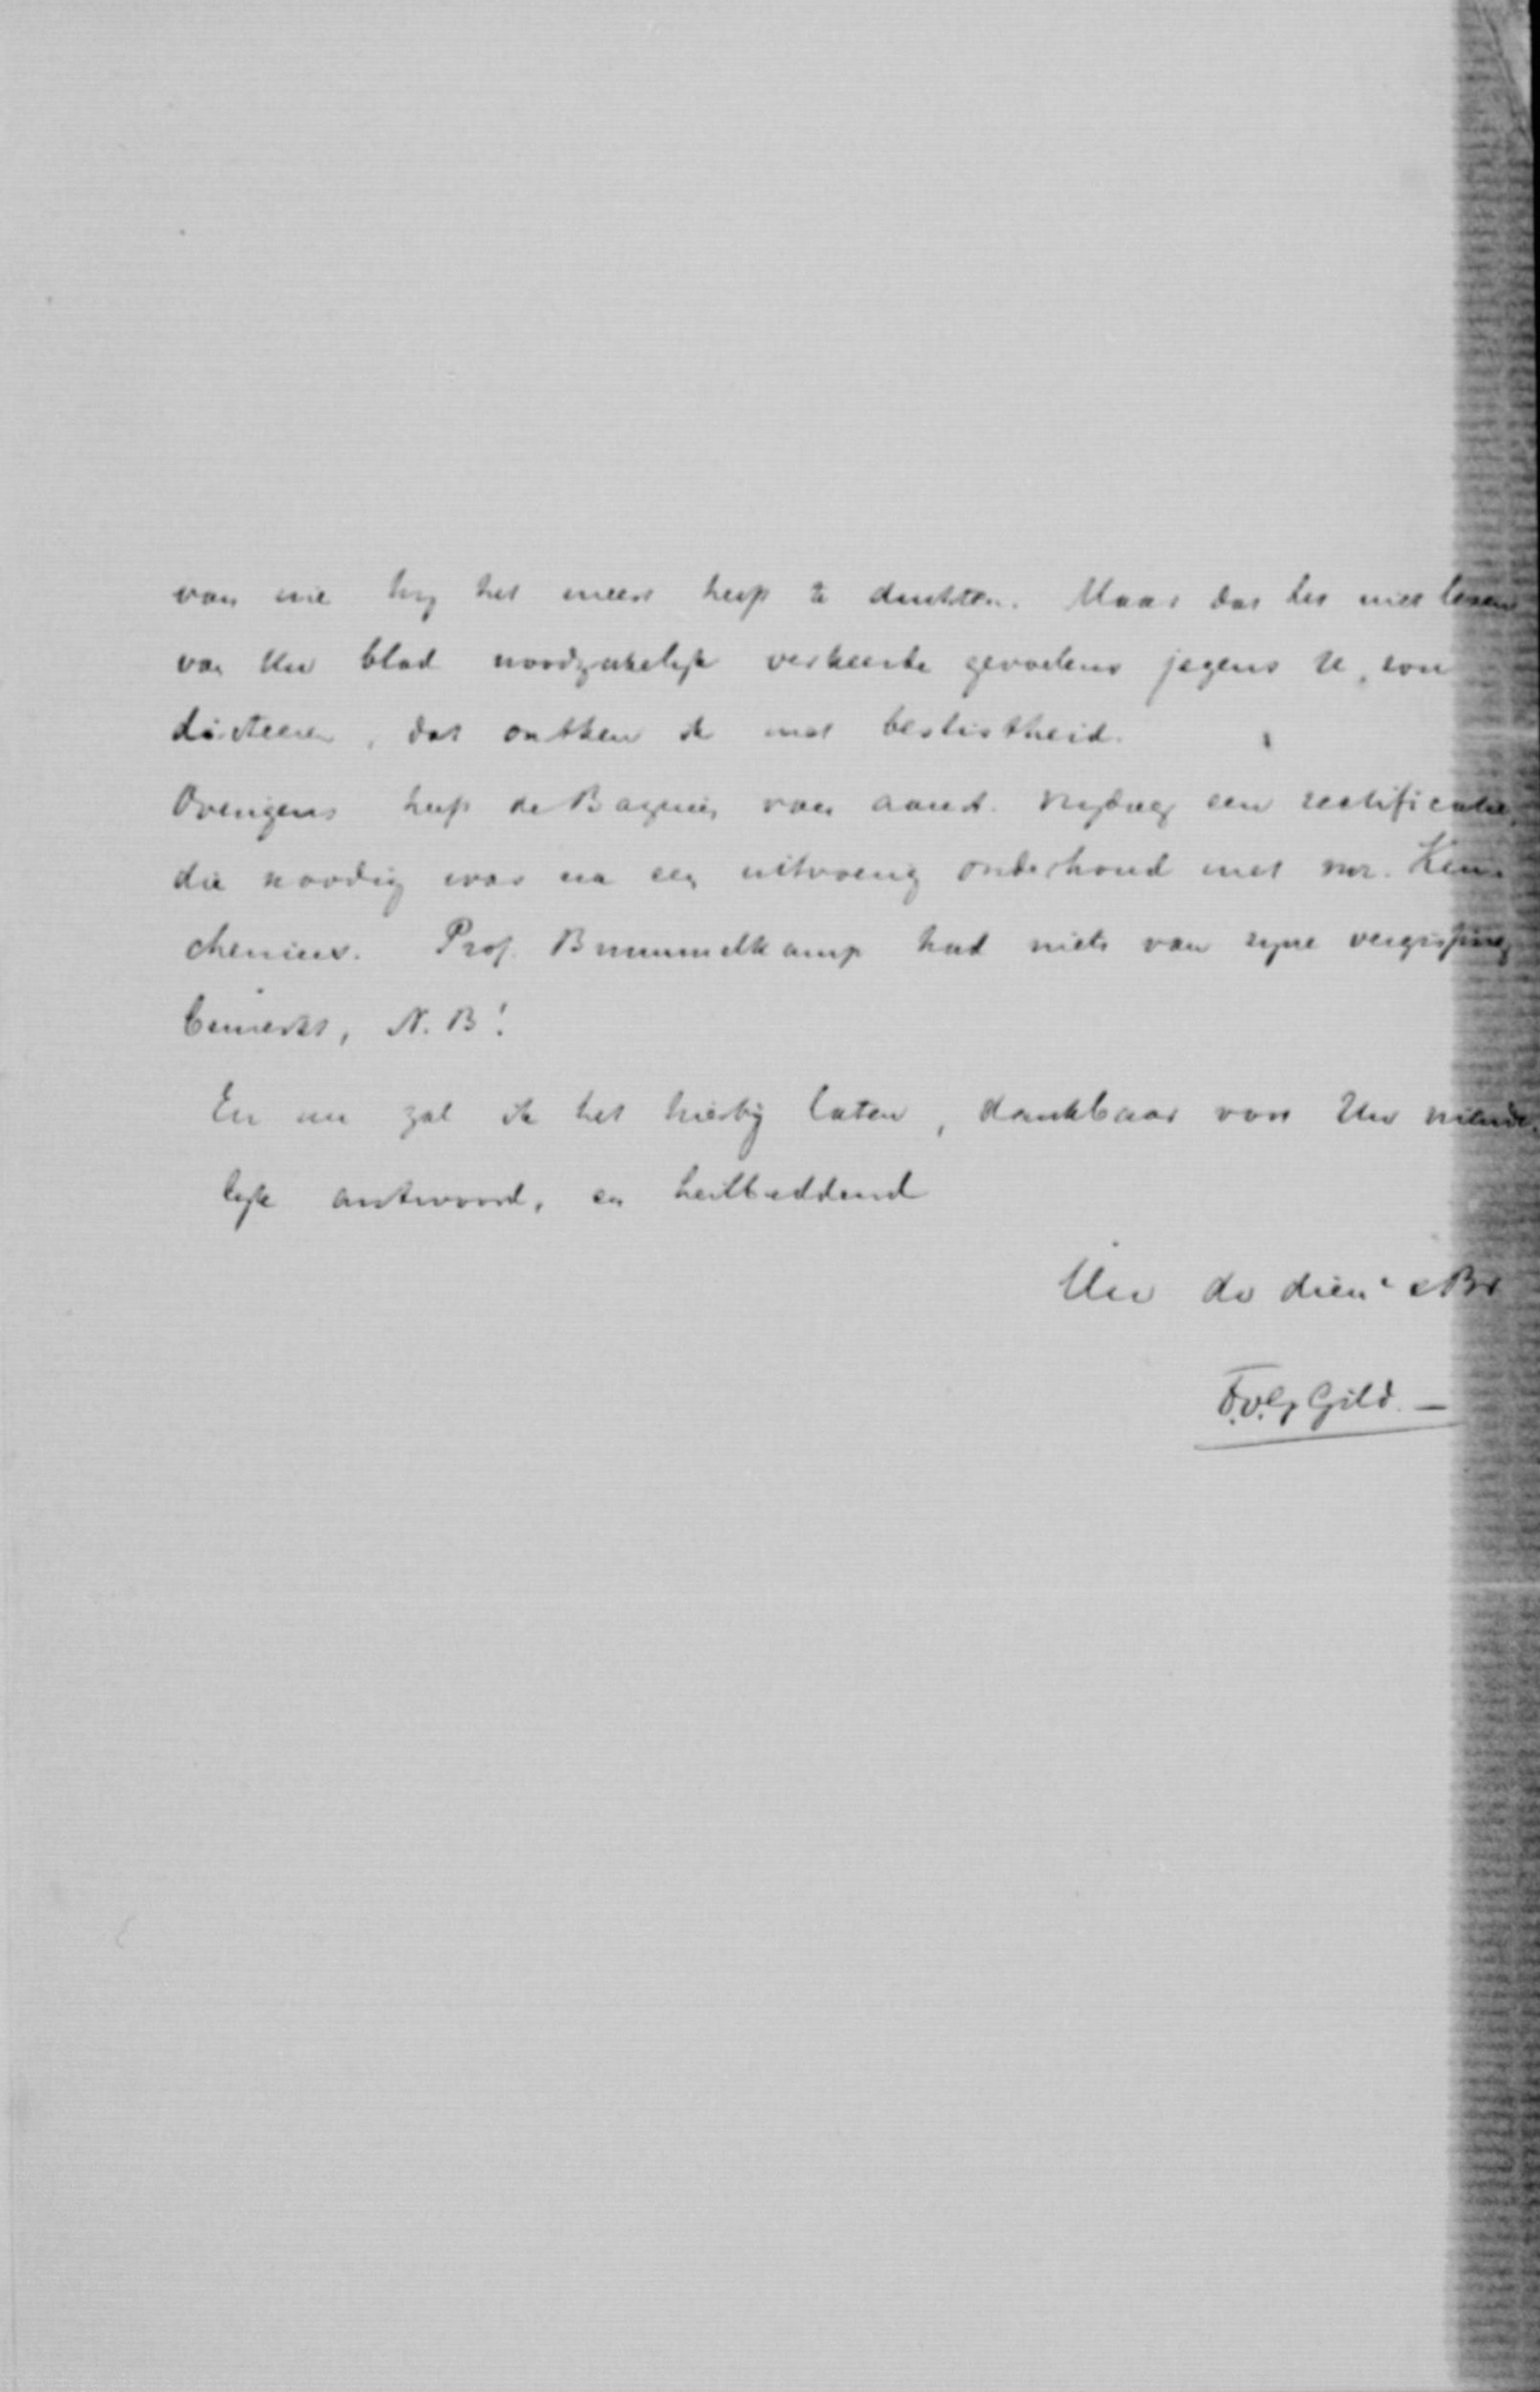 van wie hy het meest heeft te duchten. Maar dat het niet lezen
van Uw blad noodzakelijk verkeerde gevoelens jegens U, zou
dicteeren, dat ontken ik met beslistheid.
Overigens heeft de Bazuin van aanst. vrydag een rectificatie,
die noodig was na een uitvoerig onderhoud met mr. Keu-
chenius. Prof. Brummelkamp had niets van zyne vergissing
bemerkt, N.B!
En nu zal ik het hierby laten, dankbaar voor Uw vriende-
lyk antwoord, en heilbiddend
Uw dv dien. Br
F.v.Gh Gild. —